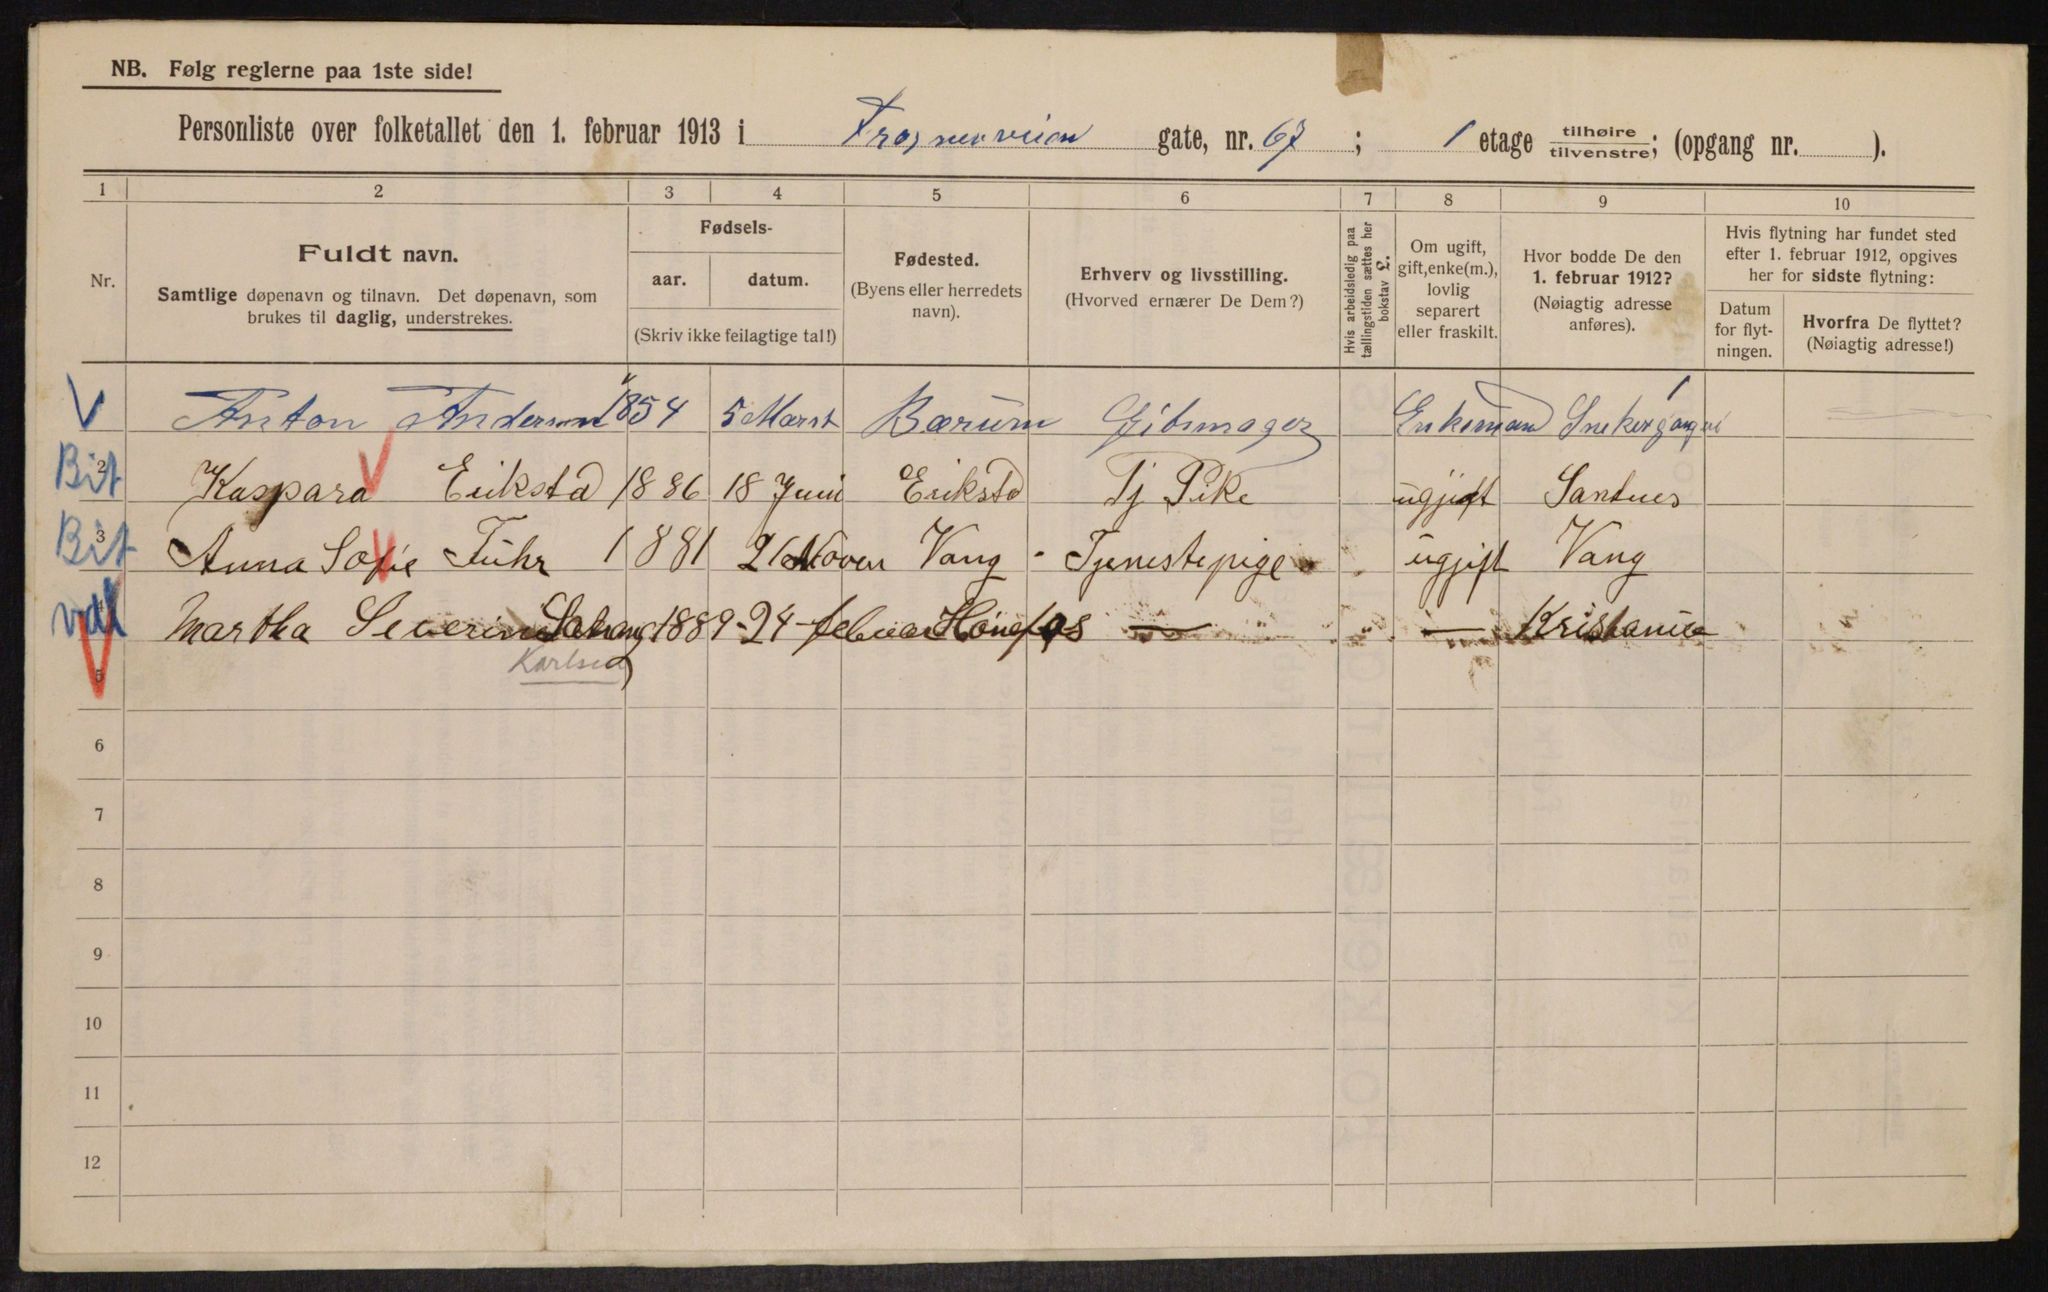 NB. Følg reglerne paa 1ste side!
Personliste over folketallet den 1. februar 1913 i Frognerveien gate, nr. 67 ; 1 etage tilhøire tilvenstre; (opgang nr. ).
1 2 3 4 5 6 7 8 9 10
Nr.
Fuldt navn.
Samtlige døpenavn og tilnavn. Det døpenavn, som
brukes til daglig, understrekes.
Fødsels-
aar. datum.
(Skriv ikke feilagtige tal!)
Fødested.
(Byens eller herredets
navn).
Erhverv og livsstilling.
(Hvorved ernærer De Dem?)
Hvis arbeidsledig paa
tællingstiden sættes her
bokstav £.
Om ugift,
gift, enke(m.),
lovlig
separert
eller fraskilt.
Hvor bodde De den
1. februar 1912?
(Nøiagtig adresse
anføres).
Hvis flytning har fundet sted
efter 1. februar 1912, opgives
her for sidste flytning:
Datum
for flyt-
ningen.
Hvorfra De flyttet?
(Nøiagtig adresse!)
Anton Andersen 1854 5 Marst Bærum Gibsmager Enkemand
Bit 2 Kaspara Eikstad 1886 18 Juni Erikstd Tj Pike ugjift
Bit 3 Anna Sofie Fuhr 1881 21 Noven Vang - Tjenestepige ugjift Vang
4 Martha Severine 1889 - 24 - februar Hønefos — — Kristania
5 Karlsen
6
7
8
9
10
11
12